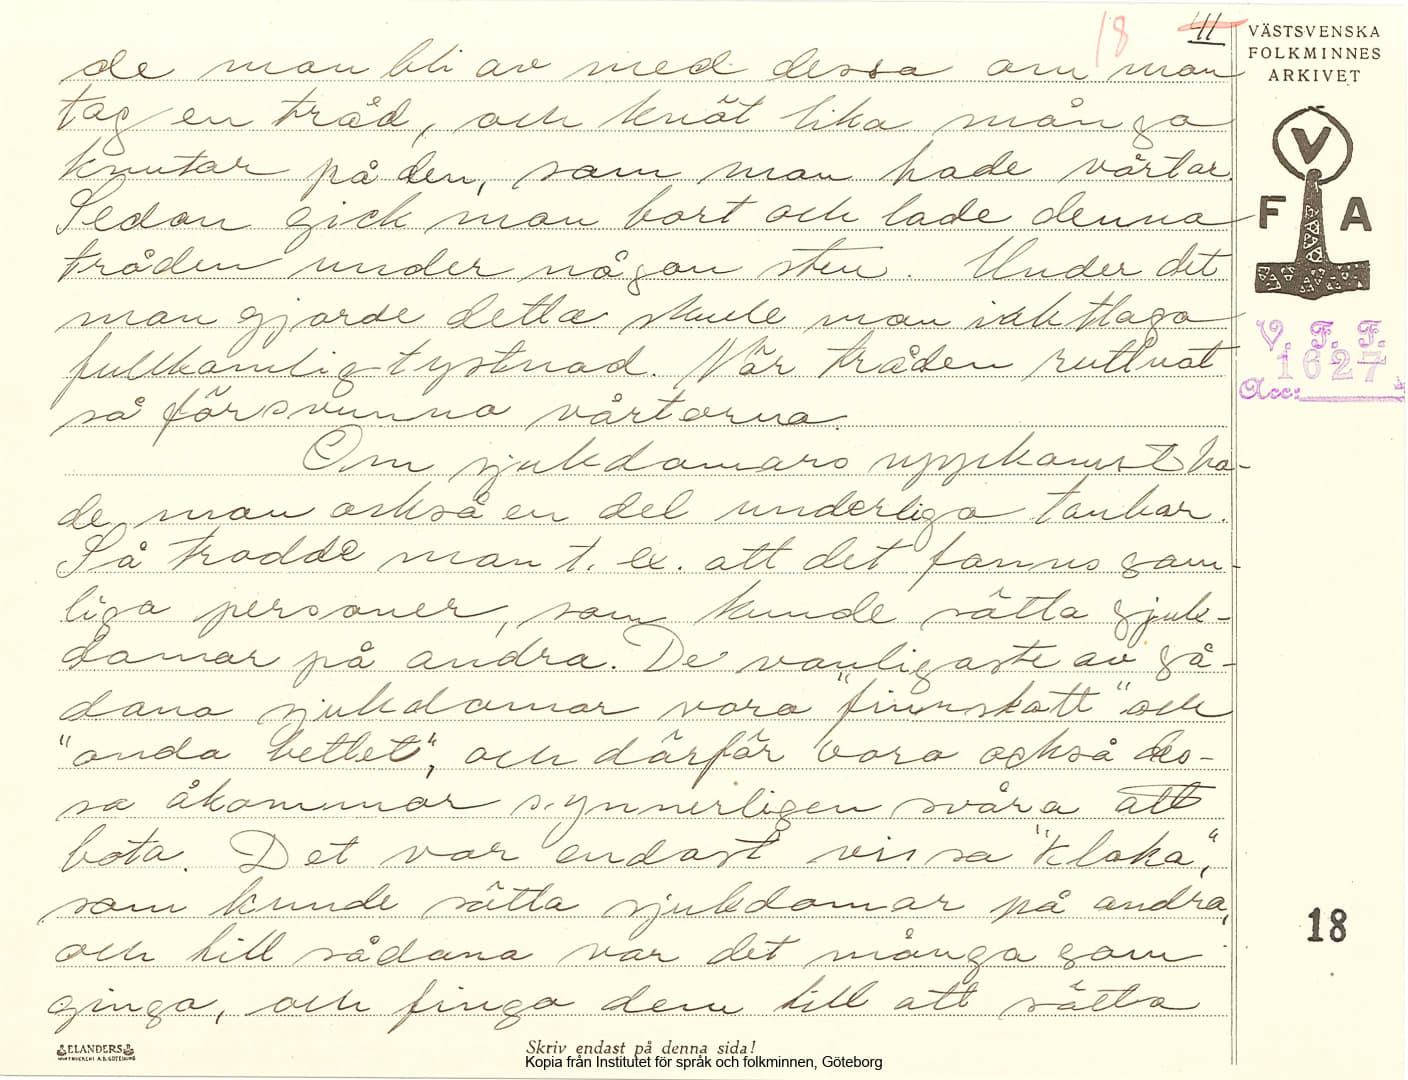 18 11
VÄSTSVENSKA
FOLKMINNES
ARKIVET
V
F A
V. F. F.
1627
Acc:
de man bli av med dessa om man
tag en tråd, och knöt lika många
knutar på den, som man hade vårtar.
Sedan gick man bort och lade denna
tråden under någon sten. Under det
man gjorde detta skulle man iakttaga
fullkomlig tystnad. När tråden ruttnat
så försvunno vårtorna.
Om sjukdomars uppkomst ha-
de man också en del underliga tankar.
Så trodde man t. ex. att det fanns som-
liga personer, som kunde sätta sjuk-
domar på andra. De vanligaste av så-
dana sjukdomar voro "finnskott" och
"onda bettet", och därför voro också des-
sa åkommor synnerligen svåra att
bota. Det var endast vissa "kloka",
som kunde sätta sjukdomar på andra,
och till sådana var det många som
gingo, och fingo dem till att sätta
18
ELANDERS
Skriv endast på denna sida!
Kopia från Institutet för språk och folkminnen, Göteborg